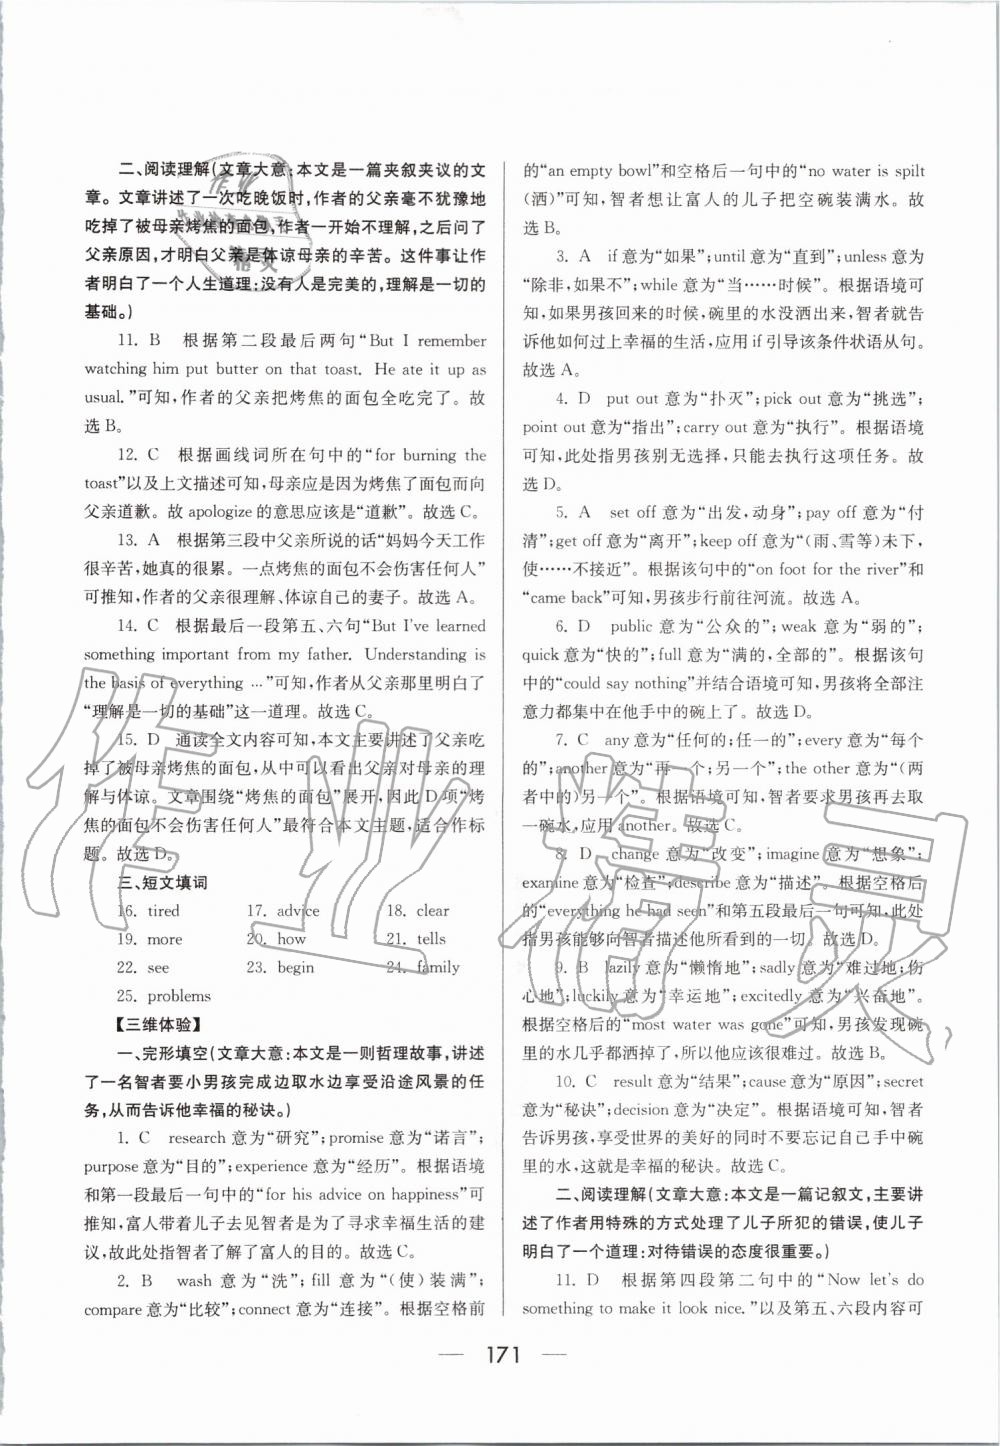 二、阅读理解(文章大意:本文是一篇夹叙夹议的文
章。文章讲述了一次吃晚饭时,作者的父亲毫不犹豫地
吃掉了被母亲烤焦的面包,作者一开始不理解,之后问了
父亲原因,才明白父亲是体谅母亲的辛苦。这件事让作
者明白了一个人生道理:没有人是完美的,理解是一切的
基础。)
11. B 根据第二段最后两句“But I remember
watching him put butter on that toast. He ate it up as
usual.”可知,作者的父亲把烤焦的面包全吃完了。故
选 B。
12. C 根据画线词所在句中的“for burning the
toast”以及上文描述可知,母亲应是因为烤焦了面包而向
父亲道歉。故 apologize 的意思应该是“道歉”。故选 C。
13. A 根据第三段中父亲所说的话“妈妈今天工作
很辛苦,她真的很累。一点烤焦的面包不会伤害任何人”
可推知,作者的父亲很理解、体谅自己的妻子。故选 A。
14. C 根据最后一段第五、六句“But I've learned
something important from my father. Understanding is
the basis of everything …”可知,作者从父亲那里明白了
“理解是一切的基础”这一道理。故选 C。
15. D 通读全文内容可知,本文主要讲述了父亲吃
掉了被母亲烤焦的面包,从中可以看出父亲对母亲的理
解与体谅。文章围绕“烤焦的面包”展开,因此 D 项“烤
焦的面包不会伤害任何人”最符合本文主题,适合作标
题。故选 D。
三、短文填词
16. tired 17. advice 18. clear
19. more 20. how 21. tells
22. see 23. begin 24. family
25. problems
【三维体验】
一、完形填空(文章大意:本文是一则哲理故事,讲述
了一名智者要小男孩完成边取水边享受沿途风景的任
务,从而告诉他幸福的秘诀。)
1. C research 意为“研究”;promise 意为“诺言”;
purpose 意为“目的”;experience 意为“经历”。根据语境
和第一段最后一句中的“for his advice on happiness”可
推知,富人带着儿子去见智者是为了寻求幸福生活的建
议,故此处指智者了解了富人的目的。故选 C。
2. B wash 意为“洗”;fill 意为“(使)装满”;
compare 意为“比较”;connect 意为“连接”。根据空格前
的“an empty bowl”和空格后一句中的“no water is spilt
(洒)”可知,智者想让富人的儿子把空碗装满水。故
选 B。
3. A if 意为“如果”;until 意为“直到”;unless 意为
“除非,如果不”;while 意为“当……时候”。根据语境可
知,如果男孩回来的时候,碗里的水没洒出来,智者就告
诉他如何过上幸福的生活,应用 if 引导该条件状语从句。
故选 A。
4. D put out 意为“扑灭”;pick out 意为“挑选”;
point out 意为“指出”;carry out 意为“执行”。根据语境
可知,此处指男孩别无选择,只能去执行这项任务。故
选 D。
5. A set off 意为“出发,动身”;pay off 意为“付
清”;get off 意为“离开”;keep off 意为“(雨、雪等)未下,
使……不接近”。根据该句中的“on foot for the river”和
“came back”可知,男孩步行前往河流。故选 A。
6. D public 意为“公众的”;weak 意为“弱的”;
quick 意为“快的”;full 意为“满的,全部的”。根据该句
中的“could say nothing”并结合语境可知,男孩将全部注
意力都集中在他手中的碗上了。故选 D。
7. C any 意为“任何的;任一的”;every 意为“每个
的”;another 意为“再一个;另一个”;the other 意为“(两
者中的)另一个”。根据语境可知,智者要求男孩再去取
一碗水,应用 another。故选 C。
8. D change 意为“改变”;imagine 意为“想象”;
examine 意为“检查”;describe 意为“描述”。根据空格后
的“everything he had seen”和第五段最后一句可知,此处
指男孩能够向智者描述他所看到的一切。故选 D。
9. B lazily 意为“懒惰地”;sadly 意为“难过地;伤
心地”;luckily 意为“幸运地”;excitedly 意为“兴奋地”。
根据空格后的“most water was gone”可知,男孩发现碗
里的水几乎都洒掉了,所以他应该很难过。故选 B。
10. C result 意为“结果”;cause 意为“原因”;secret
意为“秘诀”;decision 意为“决定”。根据语境可知,智者
告诉男孩,享受世界的美好的同时不要忘记自己手中碗
里的水,这就是幸福的秘诀。故选 C。
二、阅读理解(文章大意:本文是一篇记叙文,主要讲
述了作者用特殊的方式处理了儿子所犯的错误,使儿子
明白了一个道理:对待错误的态度很重要。)
11. D 根据第四段第二句中的“Now let's do
something to make it look nice.”以及第五、六段内容可
— 171 —
作业精灵